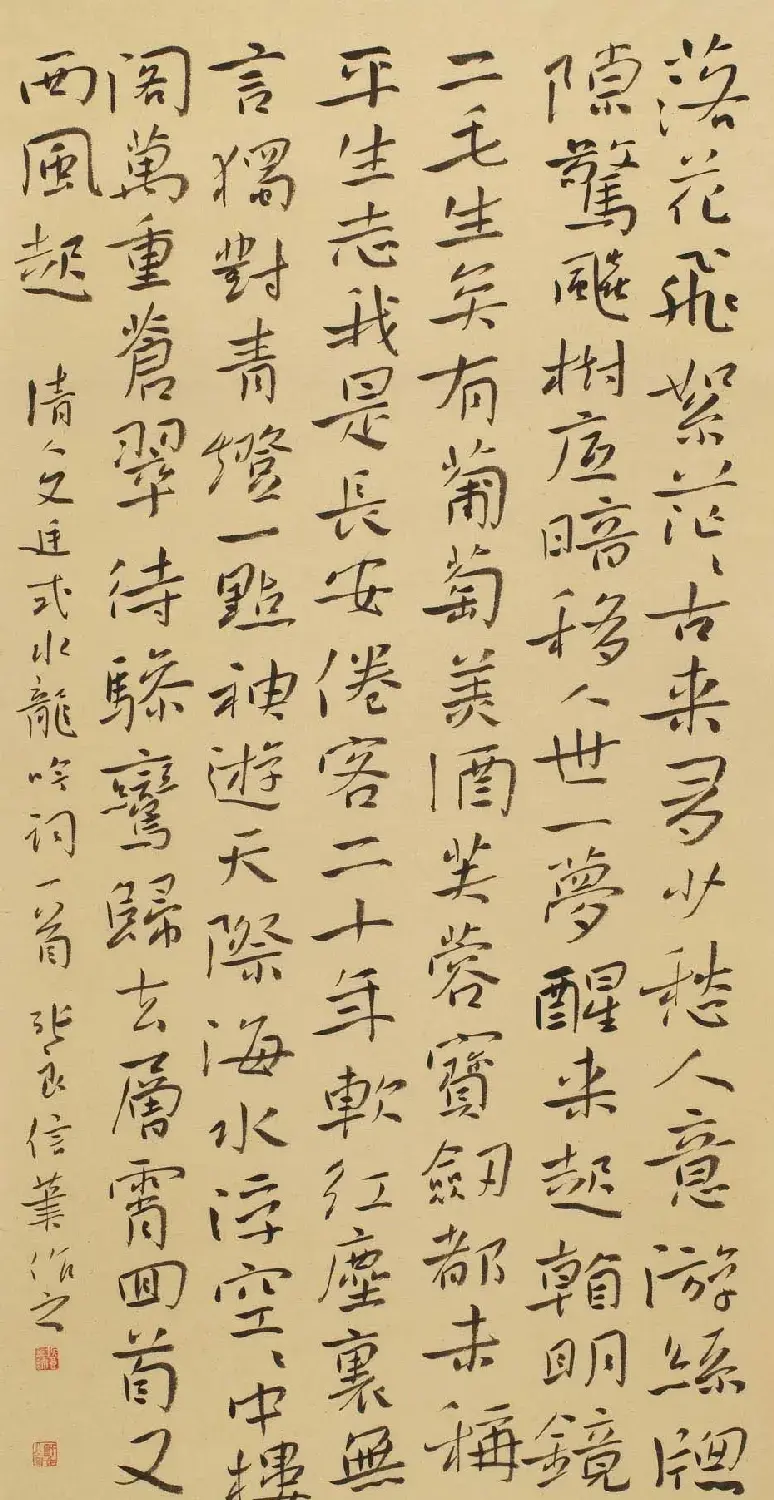 落花飛絮茫々古来多少愁人意游絲牕
隙驚飆樹底暗移人世一夢醒来起看明鏡
二毛生矣有葡萄美酒芙蓉寶劒都未稱
平生志我是長安倦客二十年軟紅塵裏無
言獨對青燈一點神遊天際海水浮空々中樓
閣萬重蒼翠待驂鸞歸去層霄回首又
西風起 清人文廷式水龍吟詞一首 張良信筆作之